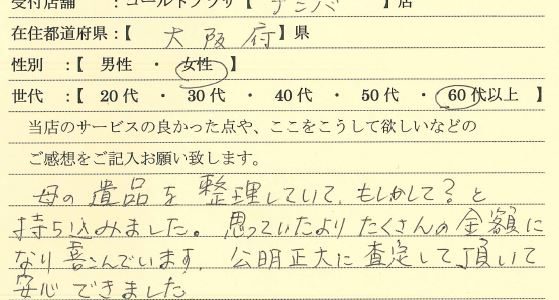 受付店舗 :ゴールドプラザ【 ナンバ 】店
在住都道府県:【 大阪府 】県
性別 :【 男性 ・ 女性 】
世代 :【 20代 ・ 30代 ・ 40代 ・ 50代 ・ 60代以上 】
当店のサービスの良かった点や、ここをこうして欲しいなどの
ご感想をご記入お願い致します。
母の遺品を整理していて、もしかして?と
持ち込みました。思っていたよりたくさんの金額に
なり喜こんでいます。公明正大に査定して頂いて
安心できました